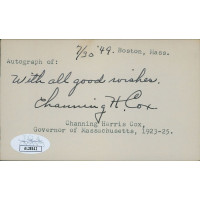 7/30 '49. Boston, Mass.
Autograph of:
With all good wishes.
Channing H. Cox
Channing Harris Cox,
Governor of Massachusetts, 1923-25.
JSA